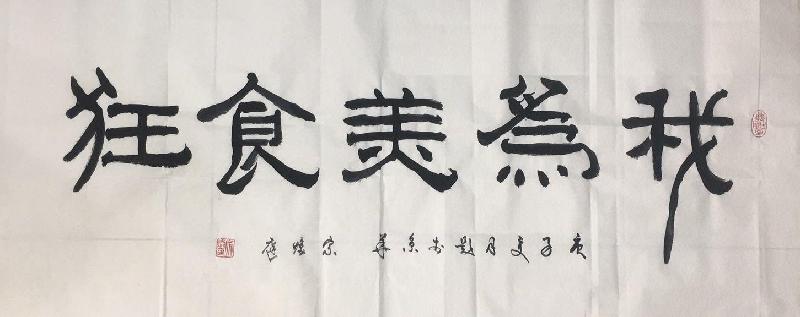 我為美食狂
庚子夏月題於京華 宗